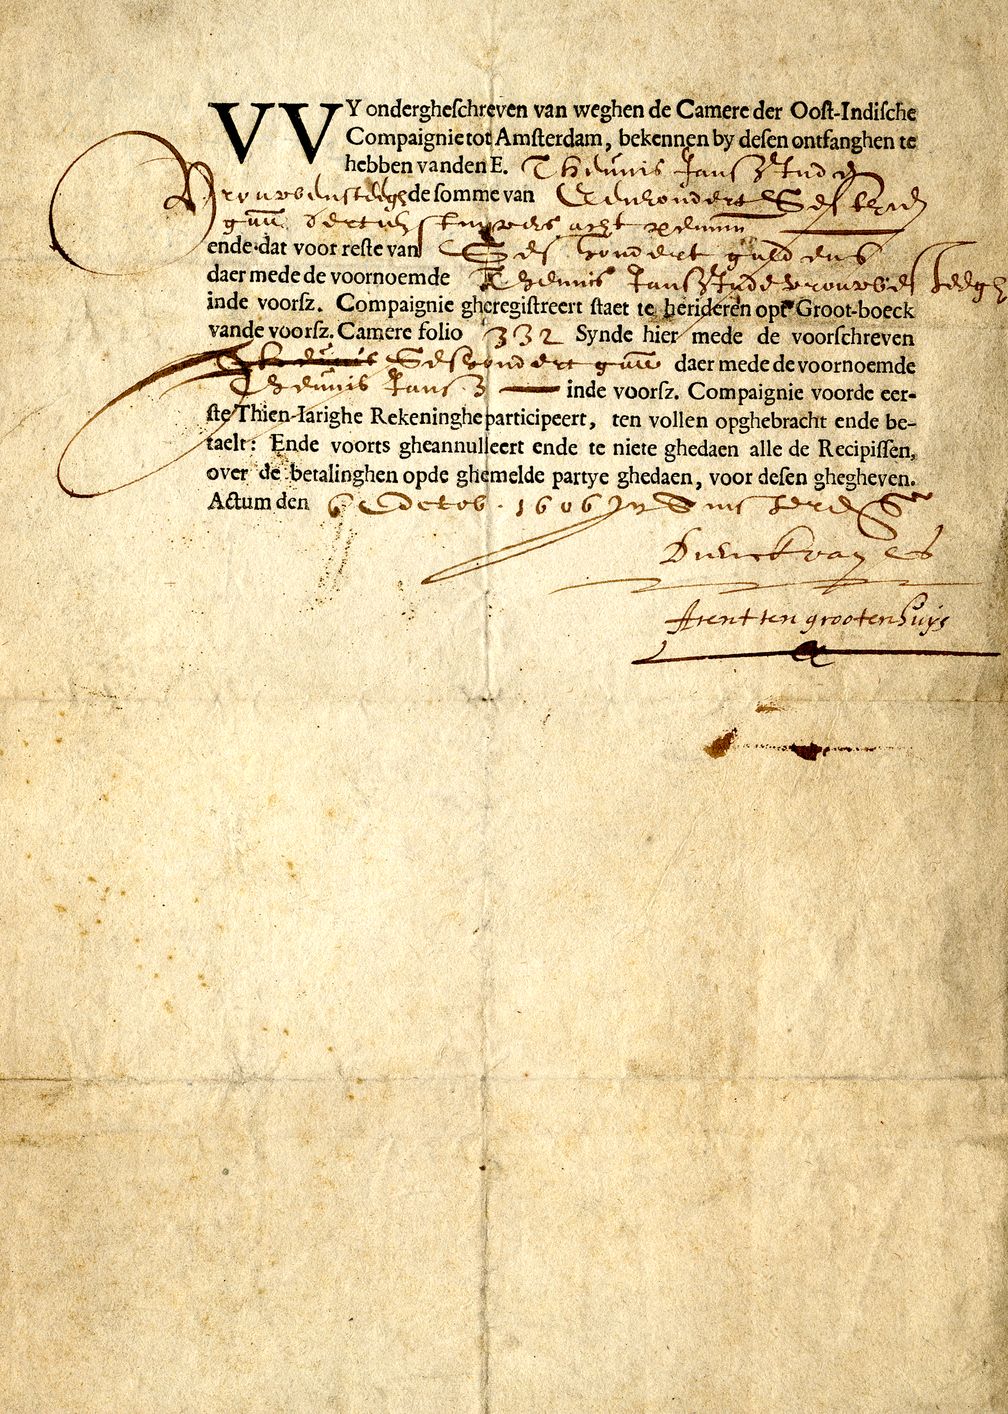 VVY onderghеſchreven van weghen de Camere der Ooſt-Indiſche
Compaignie tot Amsterdam, bekennen by deſen ontfanghen te
hebben vanden E. Theunis Jansz Inde
Vrouwensteegh de ſomme van Eenhondert
guũ dertich stuyvers acht
ende dat voor reſte van Ses hondert guldens
daer mede de voornoemde Theunis Jansz Inde vrouwe steegh
inde voorſz. Compaignie gheregiſtreert ſtaet te herideren opt Groot-boeck
vande voorſz. Camere folio 332 Synde hier mede de voorſchreven
Seshondert guũ daer mede de voornoemde
Theunis Jansz inde voorſz. Compaignie voorde eer-
ſte Thien-Iarighe Rekeninghe participeert, ten vollen opghebracht ende be-
taelt: Ende voorts gheannulleert ende te niete ghedaen alle de Recipiſſen,
over de betalinghen opde ghemelde partye ghedaen, voor deſen ghegheven.
Actum den 6 Octob. 1606 In Amsterd
Arent ten grootenhuys